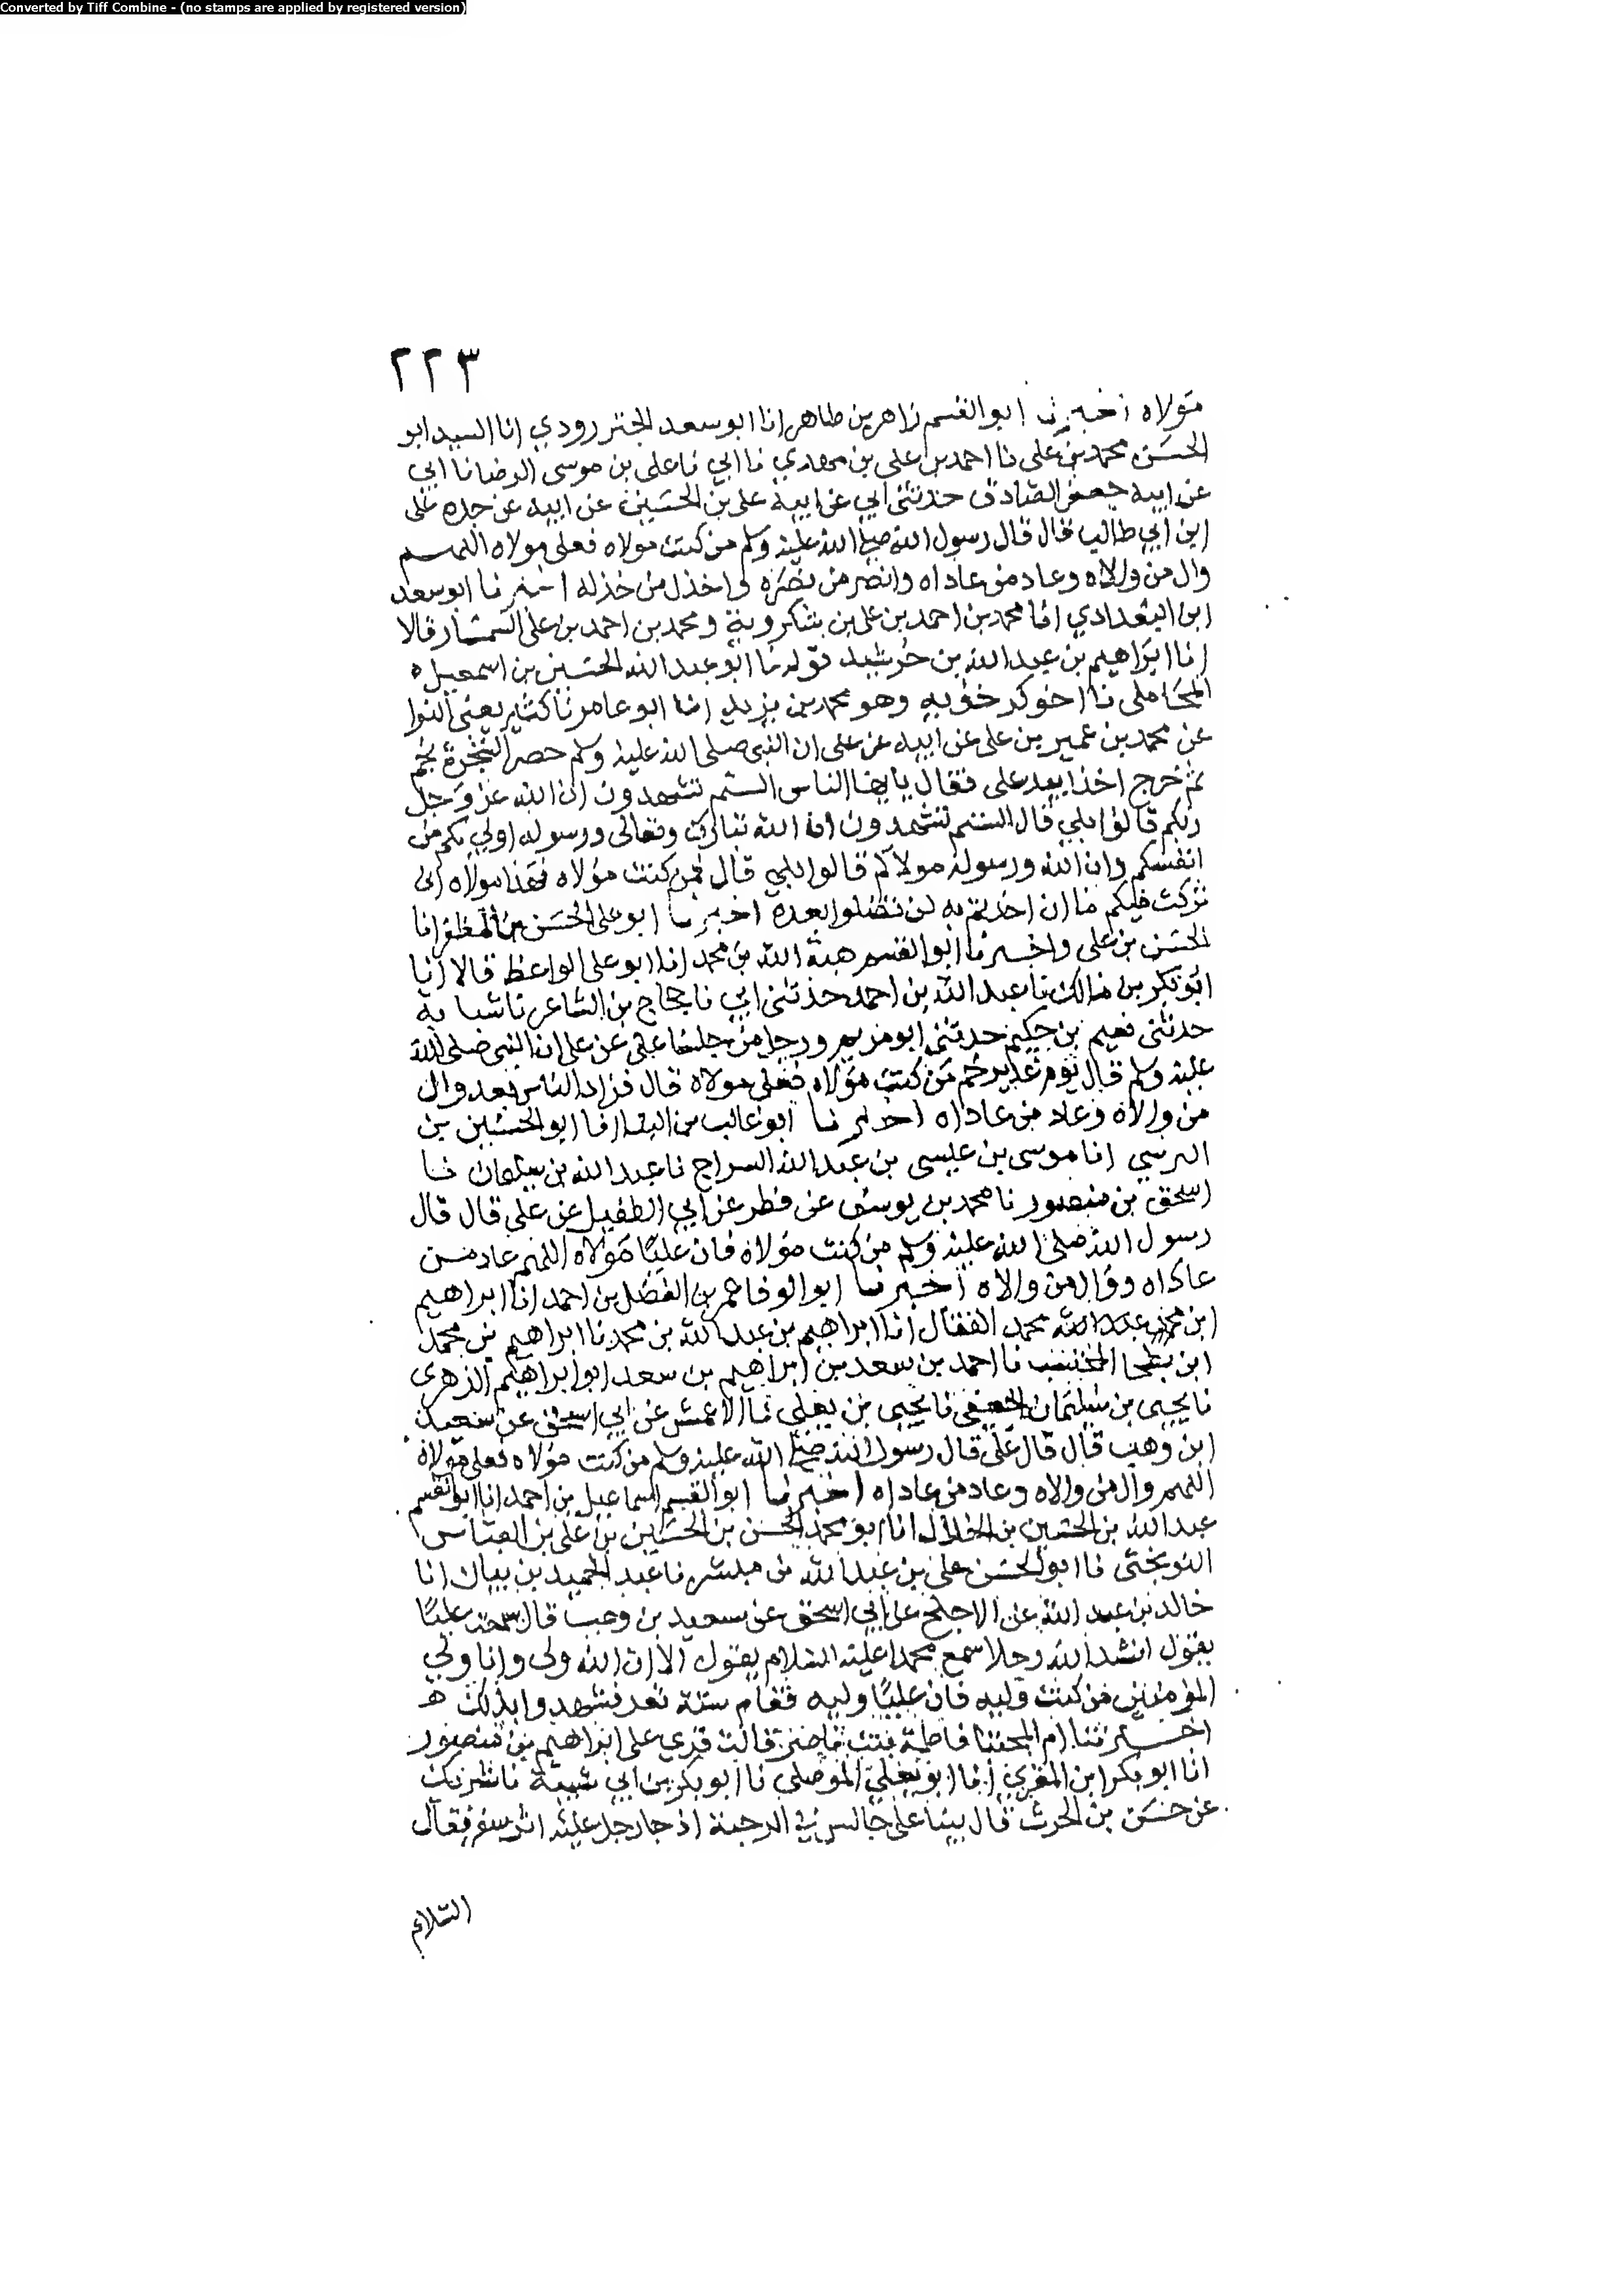 Converted by Tiff Combine - (no stamps are applied by registered version)
٢٢٣
مولاه أخبرنا ابو القسم زاهر بن طاهر انا ابو سعد الجنزرودي انا السيد ابو
الحسن محمد بن على نا احمد بن على بن مهدي نا ابي نا على بن موسى الرضا نا ابي
عن ابيه جعفر الصادق حدثنى ابي عن ابيه على بن الحسين عن ابيه عن جده على
ابن ابي طالب قال قال رسول الله صلى الله عليه وسلم من كنت مولاه فعلى مولاه اللهم
وال من والاه وعاد من عاداه وانصر من نصره واخذل من خذله اخبرنا ابو سعد
ابن البغدادي انا محمد بن احمد بن على بن شكرويه ومحمد بن احمد بن على السمسار قالا
انا ابراهيم بن عبد الله بن خرشيد قوله نا ابو عبد الله الحسين بن اسمعيل
المحاملى نا اخو كرخويه وهو محمد بن يزيد انا ابو عامر نا كثير يعنى النوا
عن محمد بن عمير بن على عن ابيه عن على ان النبى صلى الله عليه وسلم حضر الشجرة بخم
ثم خرج اخذا بيد على فقال يا يها الناس الستم تشهدون ان الله عز وجل
ربكم قالوا بلى قال الستم تشهدون ان الله تبارك وتعالى ورسوله اولى بكم من
انفسكم وان الله ورسوله مولاكم قالوا بلى قال فمن كنت مولاه فهذا مولاه انى
تركت فيكم ما ان اخذتم به لن تضلوا بعده اخبرنا ابو على الحسن بن المظفر انا
الحسن بن على واخبرنا ابو القسم هبة الله بن محمد انا ابو على الواعظ قالا انا
ابو بكر بن مالك نا عبد الله بن احمد حدثنى ابي نا حجاج بن الشاعر نا شبابة
حدثنى نعيم بن حكيم حدثنى ابو مريم ورجل من جلساء على عن على ان النبى صلى الله
عليه وسلم قال يوم غدير خم من كنت مولاه فعلى مولاه قال فزاد الناس بعد وال
من والاه وعاد من عاداه اخبرنا ابو غالب بن البنا انا ابو الحسين بن
النرسي انا موسى بن عيسى بن عبد الله السراج نا عبد الله بن سليمان نا
اسحق بن منصور نا محمد بن يوسف عن فطر عن ابي الطفيل عن على قال قال
رسول الله صلى الله عليه وسلم من كنت مولاه فان عليًا مولاه اللهم عاد من
عاداه ووال من والاه أخبرنا ابو الوفا عمر بن الفضل بن احمد انا ابراهيم
ابن محمد عبد الله محمد القفال انا ابراهيم بن عبد الله بن محمد نا ابراهيم بن محمد
ابن بطحا المحتسب نا احمد بن سعد بن ابراهيم بن سعد ابو ابراهيم الزهرى
نا يحيى بن سليمان الجعفى نا يحيى بن يعلى نا الاعمش عن ابي اسحق عن سعيد
ابن وهب قال قال على قال رسول الله صلى الله عليه وسلم من كنت مولاه فعلى مولاه
اللهم وال من والاه وعاد من عاداه اخبرنا ابو القسم اسماعيل بن احمد انا ابو القسم
عبد الله بن الحسين بن الخلال انا ابو محمد الحسن بن الحسين بن على بن العباس
النوبختى نا ابو الحسن على بن عبد الله بن مبشر نا عبد الحميد بن بيان انا
خالد بن عبد الله عن الاجلح عن ابي اسحق عن سعيد بن وهب قال سمعت عليًا
يقول انشد الله رجلا سمع محمدا عليه السلام يقول الا ان الله ولى وانا ولي
المؤمنين من كنت وليه فان عليًا وليه فقام ستة نفر فشهدوا بذلك ه
اخبرتنا ام المجتبا فاطمة بنت ناصر قالت قرى على ابراهيم بن منصور
انا ابو بكر ابن المقرى انا ابو يعلى الموصلى نا ابو بكر بن ابى شيبة نا شريك
عن حسن بن الحرث قال بينا على جالس فى الرحبة اذ جا رجل عليه اثر سفر فقال
السلام